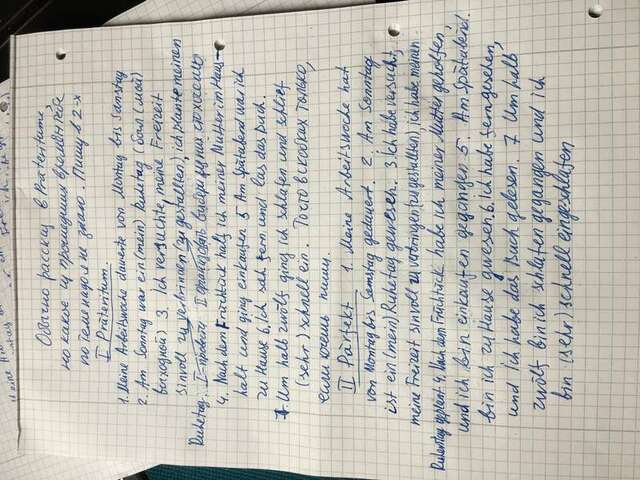 Обычно рассказ в Präteritume,
но какое из прошедших времён тебе
по теме надо я не знаю. Пишу в 2-х
I Präteritum.
1. Meine Arbeitswoche dauerte von Montag bis Samstag
2. Am Sonntag war ein (mein) Ruhetag (был (мой)
выходной) 3. Ich versuchte, meine Freizeit
sinvoll zu verbringen (zu gestalten), ich plante meinen
Ruhetag.
4. Nach dem Frühstück half ich meiner Mutter im Haus-
halt und ging einkaufen 5 Am Spätabend war ich
zu Hause 6. Ich sah fern und las das Buch.
7. Um halb zwölf ging ich schlafen und schlief
(sehr) schnell ein. То что в скобках только,
если хочешь пиши.
II Pärfekt 1. Meine Arbeitswoche hat
von Montag bis Samstag gedauert. 2. Am Sonntag
ist ein (mein) Ruhetag gewesen. 3. Ich habe versucht,
meine Freizeit sinvoll zu verbringen (zu gestalten), ich habe meinen
Ruhetag geplant 4. Nach dem Frühstück habe ich meiner Mutter geholfen,
und ich bin einkaufen gegangen 5. Am Spätabend
bin ich zu Hause gewesen. 6. Ich habe ferngesehen,
und Ich habe das Buch gelesen. 7. Um halb
zwölf bin ich schlafen gegangen und ich
bin (sehr) schnell eingeschlafen